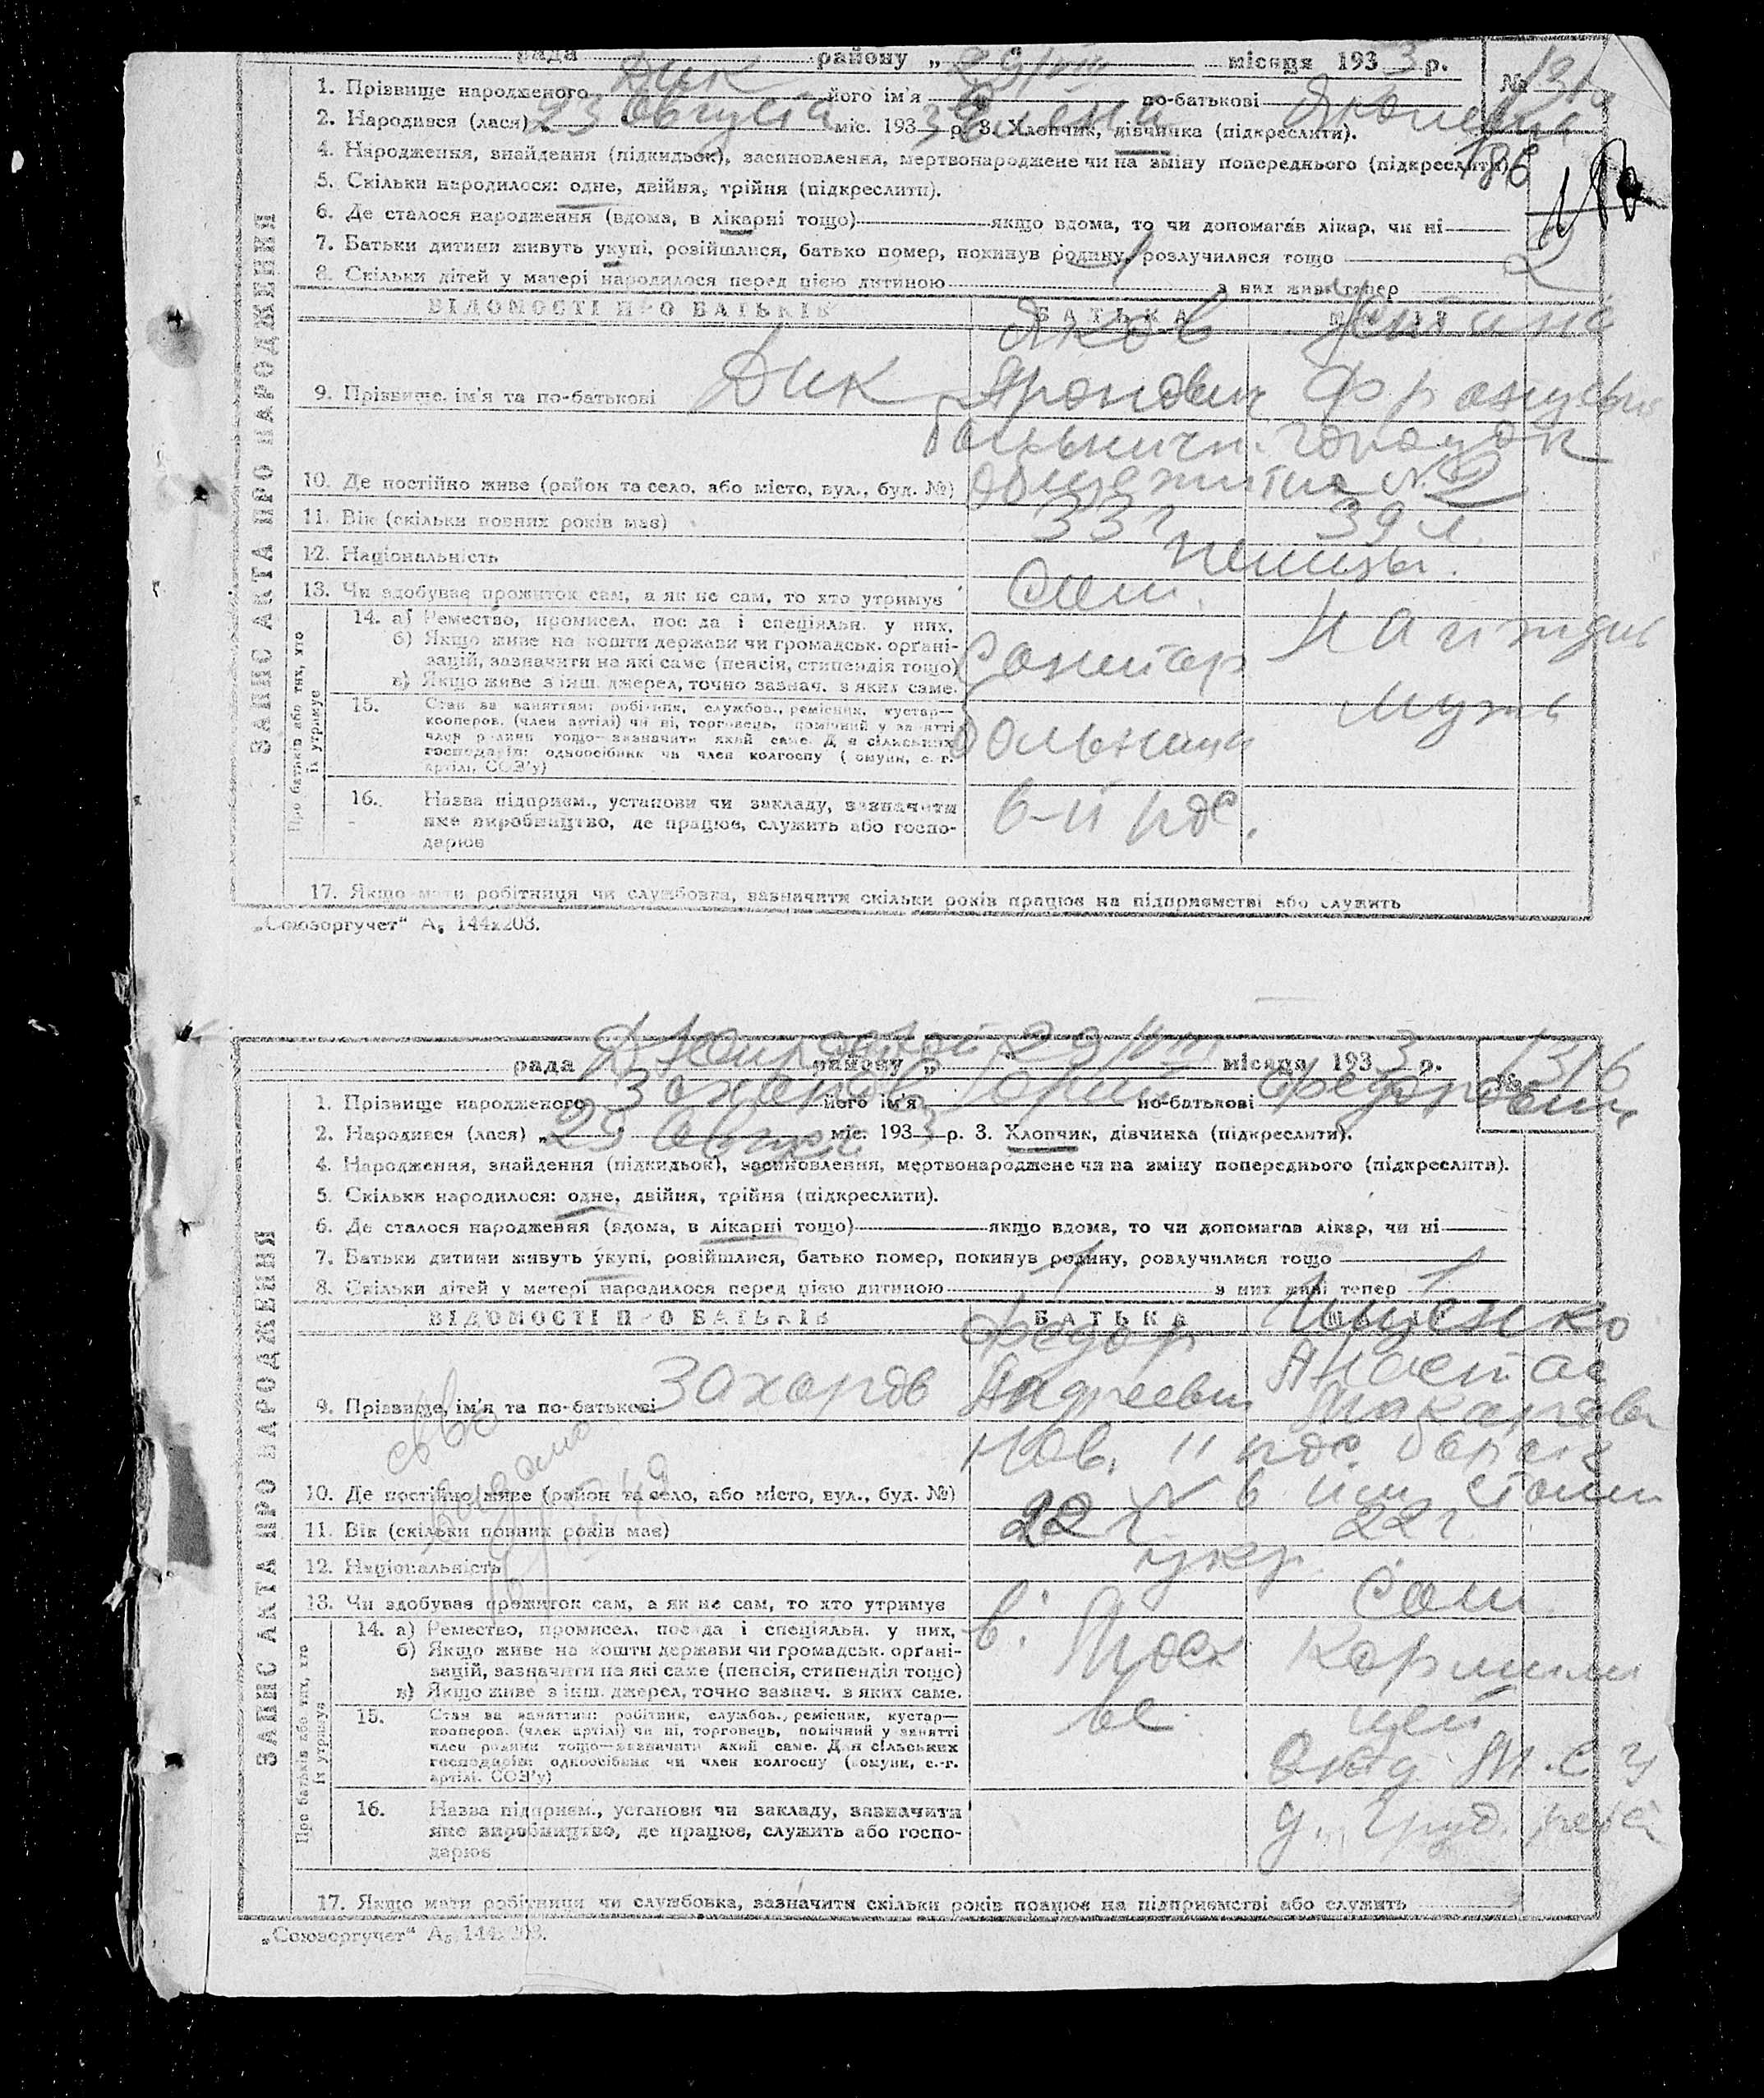 рада району „ 29/VIII місяця 1933 р. №
1. Прізвище народженого Дик його ім'я Елена по-батькові
2. Народився (лася) „23 августа міс. 1933 р. 3. Хлопчик, дівчинка (підкреслити).
4. Народження, знайдення (підкидьок), засиновлення, мертвонароджене чи на зміну попереднього (підкреслити).
186
5. Скільки народилося: одне, двійня, трійня (підкреслити).
6. Де сталося народження (вдома, в лікарні тощо) якщо вдома, то чи допомагав лікар, чи ні
7. Батьки дитини живуть укупі, розійшлися, батько помер, покинув родину, розлучилися тощо
8. Скільки дітей у матері народилося перед цією дитиною з них живі тепер 2
ВІДОМОСТІ ПРО БАТЬКІВ БАТЬКА
Яков
9. Прізвище, ім'я та по-батькові Дик
городок
10. Де постійно живе (район та село, або місто, вул., буд. №) общежитие № 2
11. Вік (скільки повних років має) 33 г. 39 л.
12. Національність немцы.
13. Чи здобуває прожиток сам, а як не сам, то хто утримує Сам.
ЗАПИС АКТА ПРО НАРОДЖЕННЯ
Про батьків або тих, хто їх утримує
14. а) Ремество, промисел, посада і спеціяльн. у них.
б) Якщо живе на кошти держави чи громадськ. органі-
зацій, зазначити на які саме (пенсія, стипендія тощо)
в) Якщо живе з інш. джерел, точно зазнач. з яких саме.
Санитар На ижд.
15. Стан за заняттям: робітник, службов., ремісник, кустар—
кооперов. (член артілі) чи ні, торговець, помічний у занятті
член родини тощо—зазначити який саме. Для сільських
господарів: одноосібник чи член колгоспу (комуни, с.-г.
артілі, СОЗ'у)
больница мужа
16. Назва підприєм., установи чи закладу, зазначити
яке виробництво, де працює, служить або госпо-
дарює
17. Якщо мати робітниця чи службовка, зазначити скільки років працює на підприємстві або служить
„Союзоргучет“ А₅ 144х203.
рада району „ 29/VIII місяця 1933 р. № 1316
1. Прізвище народженого Захаров його ім'я Юрий по-батькові Федорович
2. Народився (лася) „25 август міс. 1933 р. 3. Хлопчик, дівчинка (підкреслити).
4. Народження, знайдення (підкидьок), засиновлення, мертвонароджене чи на зміну попереднього (підкреслити).
5. Скільки народилося: одне, двійня, трійня (підкреслити).
6. Де сталося народження (вдома, в лікарні тощо) якщо вдома, то чи допомагав лікар, чи ні
7. Батьки дитини живуть укупі, розійшлися, батько помер, покинув родину, розлучилися тощо
8. Скільки дітей у матері народилося перед цією дитиною 1 з них живі тепер 1
ВІДОМОСТІ ПРО БАТЬКІВ БАТЬКА
Федор
9. Прізвище, ім'я та по-батькові Захаров Андреевич
10. Де постійно живе (район та село, або місто, вул., буд. №)
11. Вік (скільки повних років має) 22 г. 22 г.
12. Національність укр.
13. Чи здобуває прожиток сам, а як не сам, то хто утримує Сам
ЗАПИС АКТА ПРО НАРОДЖЕННЯ
Про батьків або тих, хто їх утримує
14. а) Ремество, промисел, посада і спеціяльн. у них.
б) Якщо живе на кошти держави чи громадськ. органі-
зацій, зазначити на які саме (пенсія, стипендія тощо)
в) Якщо живе з інш. джерел, точно зазнач. з яких саме.
15. Стан за заняттям: робітник, службов., ремісник, кустар—
кооперов. (член артілі) чи ні, торговець, помічний у занятті
член родини тощо—зазначити який саме. Для сільських
господарів: одноосібник чи член колгоспу (комуни, с.-г.
артілі, СОЗ'у)
16. Назва підприєм., установи чи закладу, зазначити
яке виробництво, де працює, служить або госпо-
дарює
17. Якщо мати робітниця чи службовка, зазначити скільки років працює на підприємстві або служить
„Союзоргучет“ А₅ 144х203.